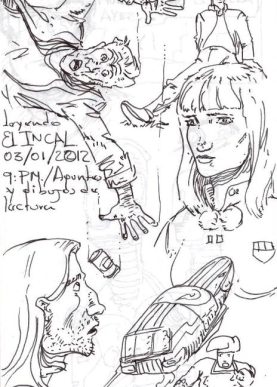 Leyendo
El INCAL
03/01/2012
9: P.M./Apuntes
y dibujos de
lectura